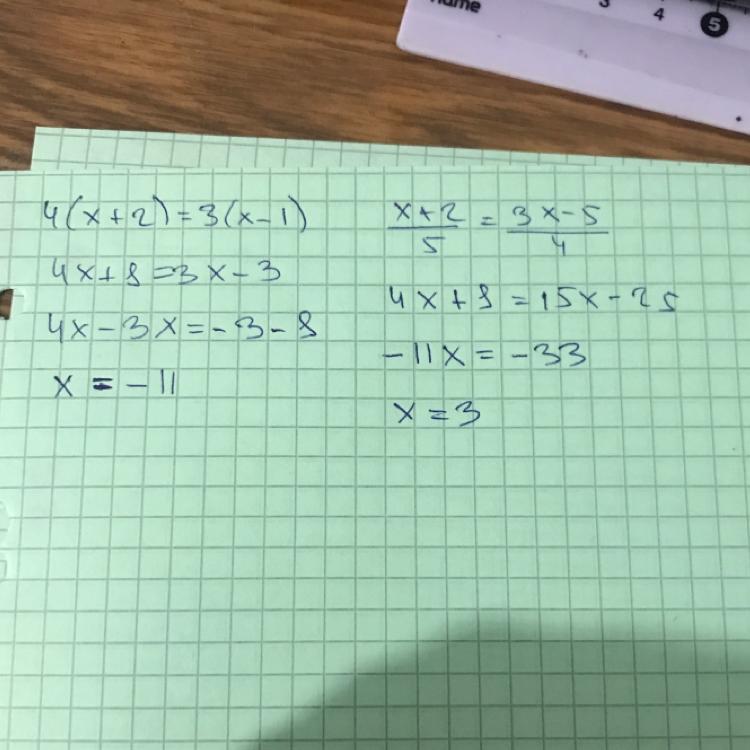 name
3 4 5
4(x+2)=3(x-1)
4x+8=3x-3
4x-3x=-3-8
x=-11
x+2/5=3x-5/4
4x+8=15x-25
-11x=-33
x=3